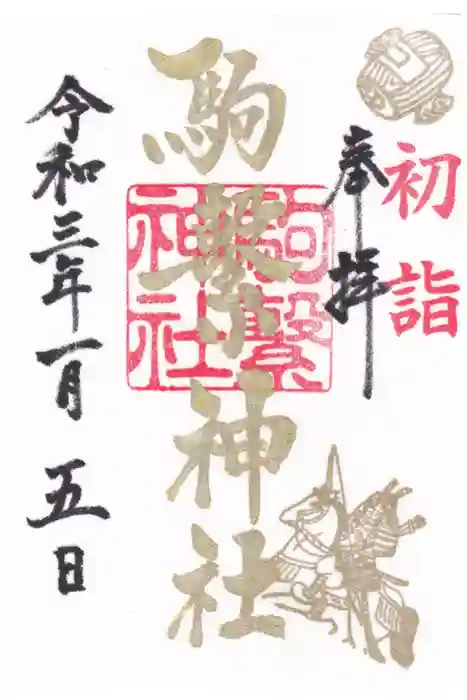 初詣
奉拝
駒繋神社
駒繋神社
令和三年一月五日